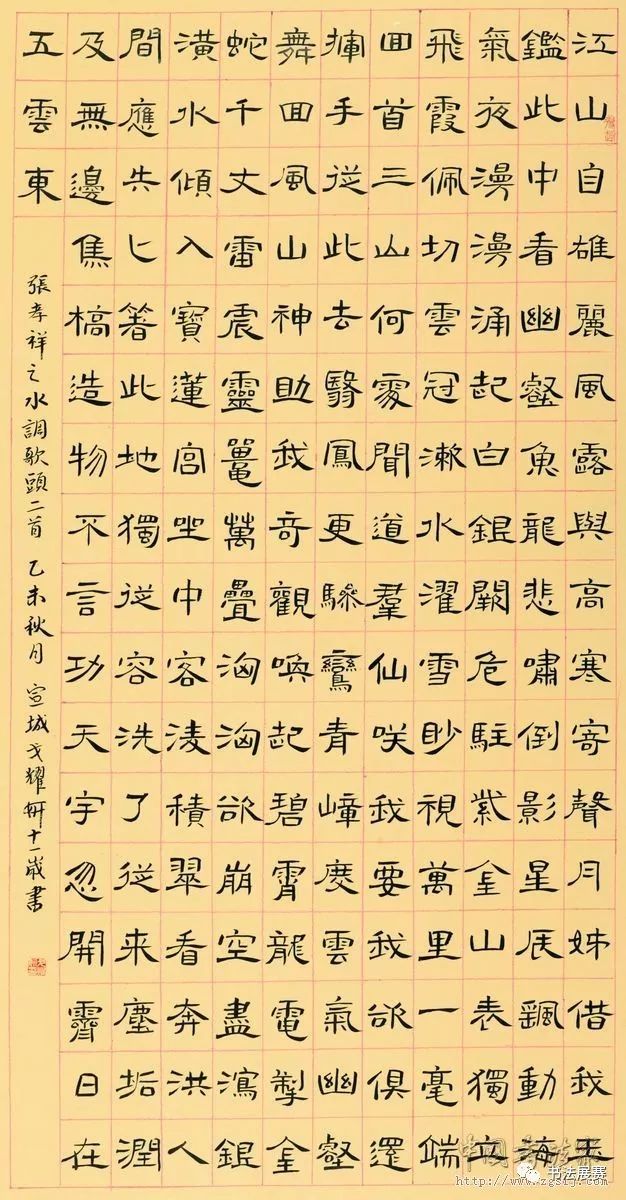 江山自雄麗風露與高寒寄聲月姊借我玉
鑑此中看幽壑魚龍悲嘯倒影星辰颻動海
氣夜漫漫涌起白銀闕危駐紫金山表獨立
飛霞佩切雲冠漱水濯雪眇視萬里一毫端
囬首三山何處聞道羣仙咲我要我欲俱還
揮手從此去翳鳳更驂鸞青嶂度雲氣幽壑
舞囬風山神助我奇觀喚起碧霄龍電掣金
蛇千丈雷震靈鼉萬疊洶洶欲崩空盡瀉銀
潢水傾入寶蓮宮坐中客淩積翠看奔洪人
間應失匕箸此地獨從容洗了從来塵垢潤
及無邊焦槁造物不言功天宇忽開霽日在
五雲東
張孝祥之水調歌頭二首 乙未秋月 宣城戈耀妍十一歲書
书法展赛